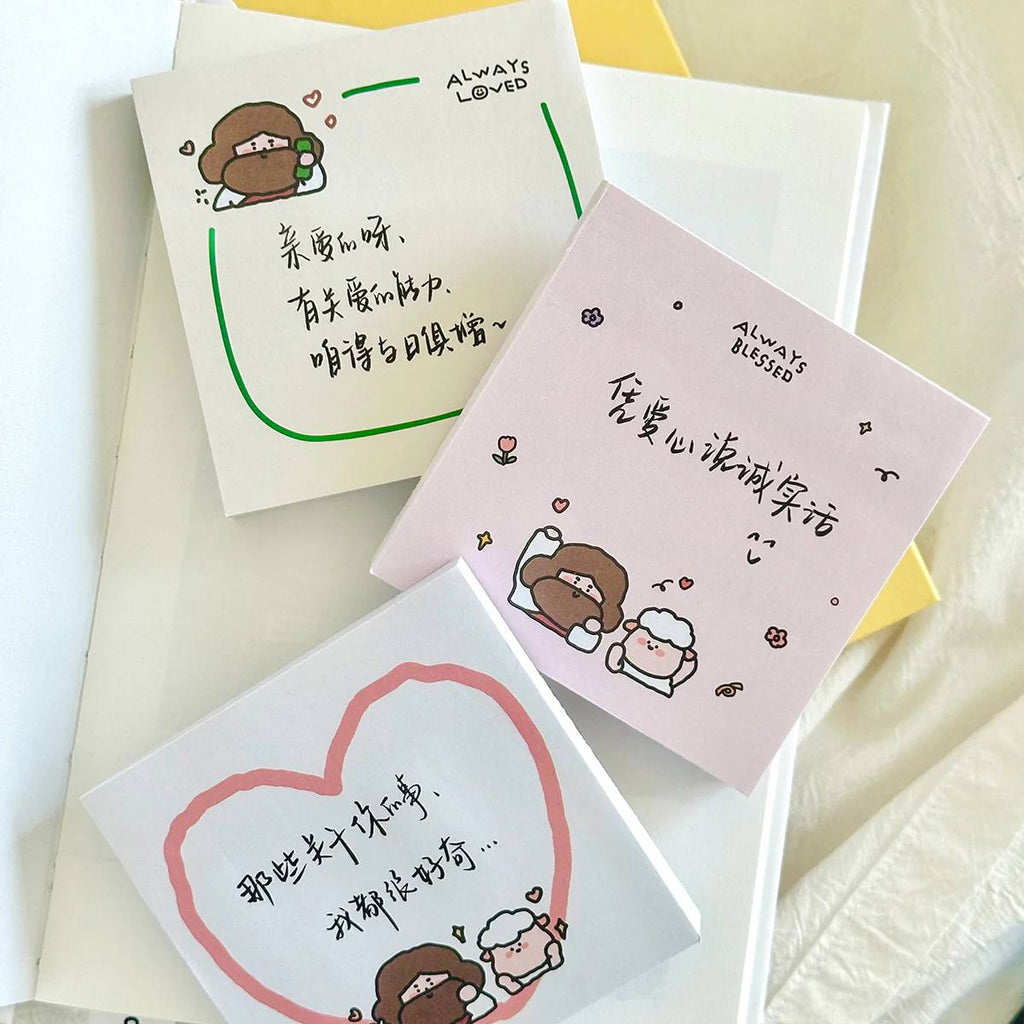 ALWAYS
LOVED
亲爱的呀、
有关爱的能力、
咱得与日俱增~
ALWAYS
BLESSED
凭爱心说诚实话
那些关于你的事、
我都很好奇...